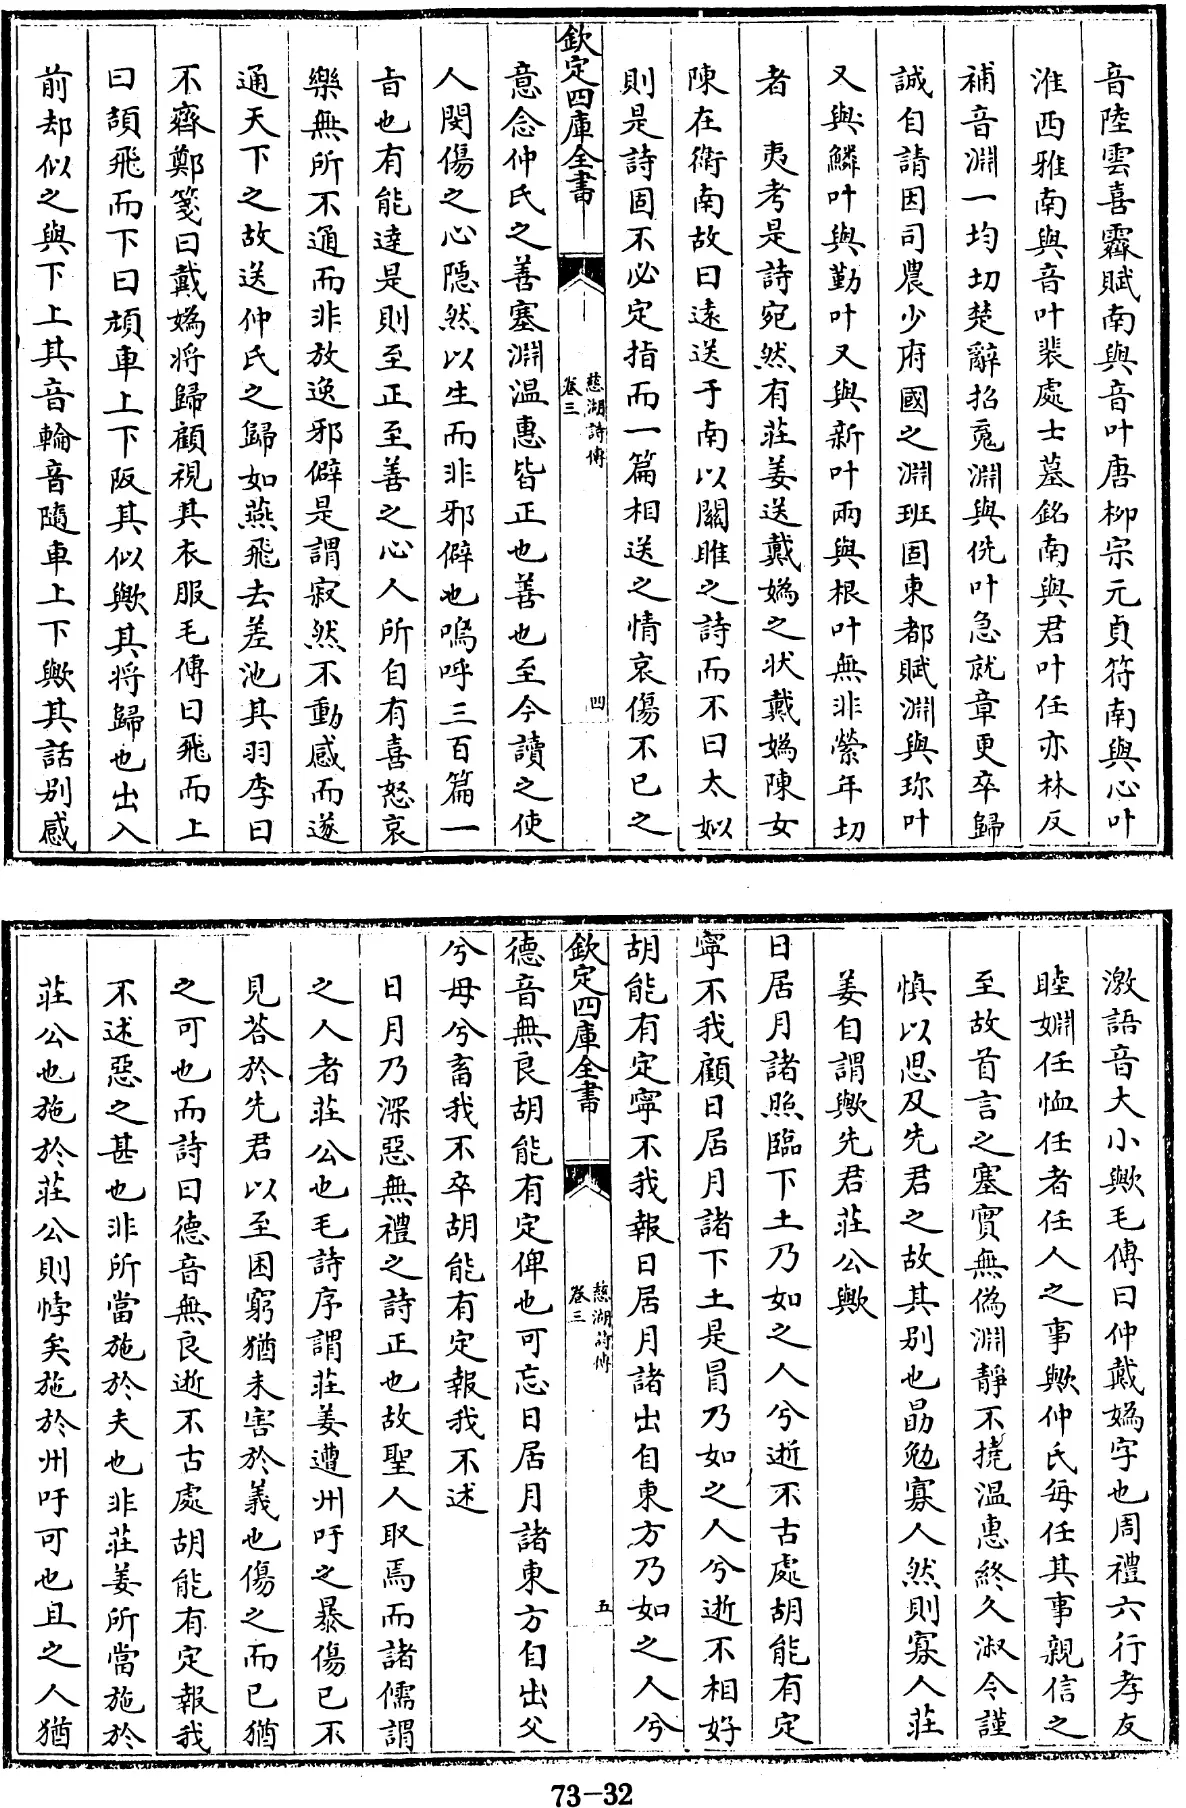 音陸雲喜霽賦南與音叶唐柳宗元貞符南與心叶
淮西雅南與音叶裴處士墓銘南與君叶任亦林反
補音淵一均切楚辭招䰟淵與侁叶急就章更卒歸
誠自請因司農少府國之淵班固東都賦淵與珎叶
又與鱗叶與勤叶又與新叶兩與根叶無非縈年切
者　夷考是詩宛然有莊姜送戴嬀之狀戴嬀陳女
陳在衛南故曰遠送于南以關雎之詩而不曰太姒
則是詩固不必定指而一篇相送之情哀傷不已之
欽定四庫全書
慈湖詩傳
卷三
四
意念仲氏之善塞淵温惠皆正也善也至今讀之使
人閔傷之心隱然以生而非邪僻也嗚呼三百篇一
㫖也有能達是則至正至善之心人所自有喜怒哀
樂無所不通而非放逸邪僻是謂寂然不動感而遂
通天下之故送仲氏之歸如燕飛去差池其羽李曰
不齊鄭箋曰戴嬀將歸顧視其衣服毛傳曰飛而上
曰頡飛而下曰頏車上下阪其似歟其將歸也出入
前却似之與下上其音輪音隨車上下歟其話别感
激語音大小歟毛傳曰仲戴嬀字也周禮六行孝友
睦婣任恤任者任人之事歟仲氏每任其事親信之
至故首言之塞實無偽淵靜不撓温惠終久淑令謹
慎以思及先君之故其别也勗勉寡人然則寡人莊
姜自謂歟先君莊公歟
日居月諸照臨下土乃如之人兮逝不古處胡能有定
寧不我顧日居月諸下土是冒乃如之人兮逝不相好
胡能有定寧不我報日居月諸出自東方乃如之人兮
欽定四庫全書
慈湖詩傳
卷三
五
德音無良胡能有定俾也可忘日居月諸東方自出父
兮母兮畜我不卒胡能有定報我不述
日月乃深惡無禮之詩正也故聖人取焉而諸儒謂
之人者莊公也毛詩序謂莊姜遭州吁之暴傷已不
見荅於先君以至困窮猶未害於義也傷之而已猶
之可也而詩曰德音無良逝不古處胡能有定報我
不述惡之甚也非所當施於夫也非莊姜所當施於
莊公也施於莊公則悖矣施於州吁可也且之人猶
73-32